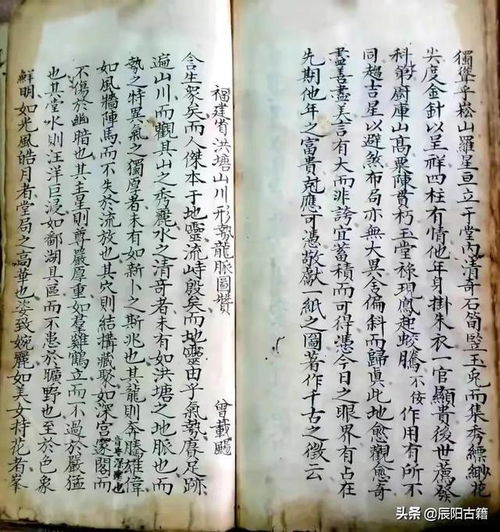 獨聳乎崧山羅星亘立于堂內清奇石筍豎玉兎而集秀縹緲花
尖度金針以呈祥四柱有情他年身掛朱衣一官顯貴後世薦發
科第廚庫山高粟陳貫朽玉堂祿現鳳起蛟騰不佞作用有所不
同趨吉星以避煞布局亦無大異舍偏斜而歸真此地愈觀愈奇
盡善盡美言有大而非誇宜蓄積而可得憑今日之眼界有占在
先期他年之富貴尅應可憑敬獻一紙之圖著作千古之徵云
福建省洪塘山川形勢龍脈圖贊
曾載颺
含生衆矣而人傑本于地靈流峙殷矣而地靈由乎氣勢膺足跡
遍山川而觀其山之秀麗水之清奇者未有如洪塘之地脈也而
勢之特異氣之獨厚者未有如新卜之斯兆也其龍則奔騰雄偉
如風檣陣馬而不失於流放也其穴則結搆藏聚如深宮邃閣而
不傷於幽暗也其主星則尊嚴厚重如羣雞鶴立而不過於嚴猛
也其堂水則汪洋巨浸如鄱湖具區而不患於曠野也至於色象
鮮明如光風皓月者堂局之高華也姿致婉麗如美女持花者峯
头条 @辰阳古籍